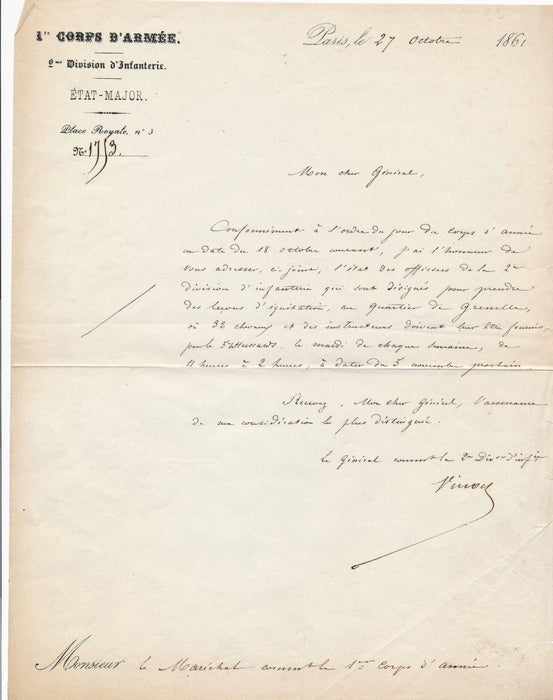 1er CORPS D'ARMÉE.
2me Division d'Infanterie.
ÉTAT-MAJOR.
Place Royale, n° 3
N° 1753.
Paris, le 27 octobre 1861
Mon cher Général,
Conformément à l'ordre du jour du corps d'armée
en date du 18 octobre courant, j'ai l'honneur de
vous adresser, ci-joint, l'état des officiers de la 2e
division d'infanterie qui sont désignés pour prendre
des leçons d'équitation, au Quartier de Grenelle,
où 32 chevaux et des instructeurs doivent leur être fournis
par le 5e Hussards, le mardi de chaque semaine, de
11 heures à 2 heures, à dater du 5 novembre prochain.
Recevez, Mon cher Général, l'assurance
de ma considération la plus distinguée.
Le Général commt la 2e Divon d'infie
Vinoy
Monsieur le Maréchal commt le 1er Corps d'armée